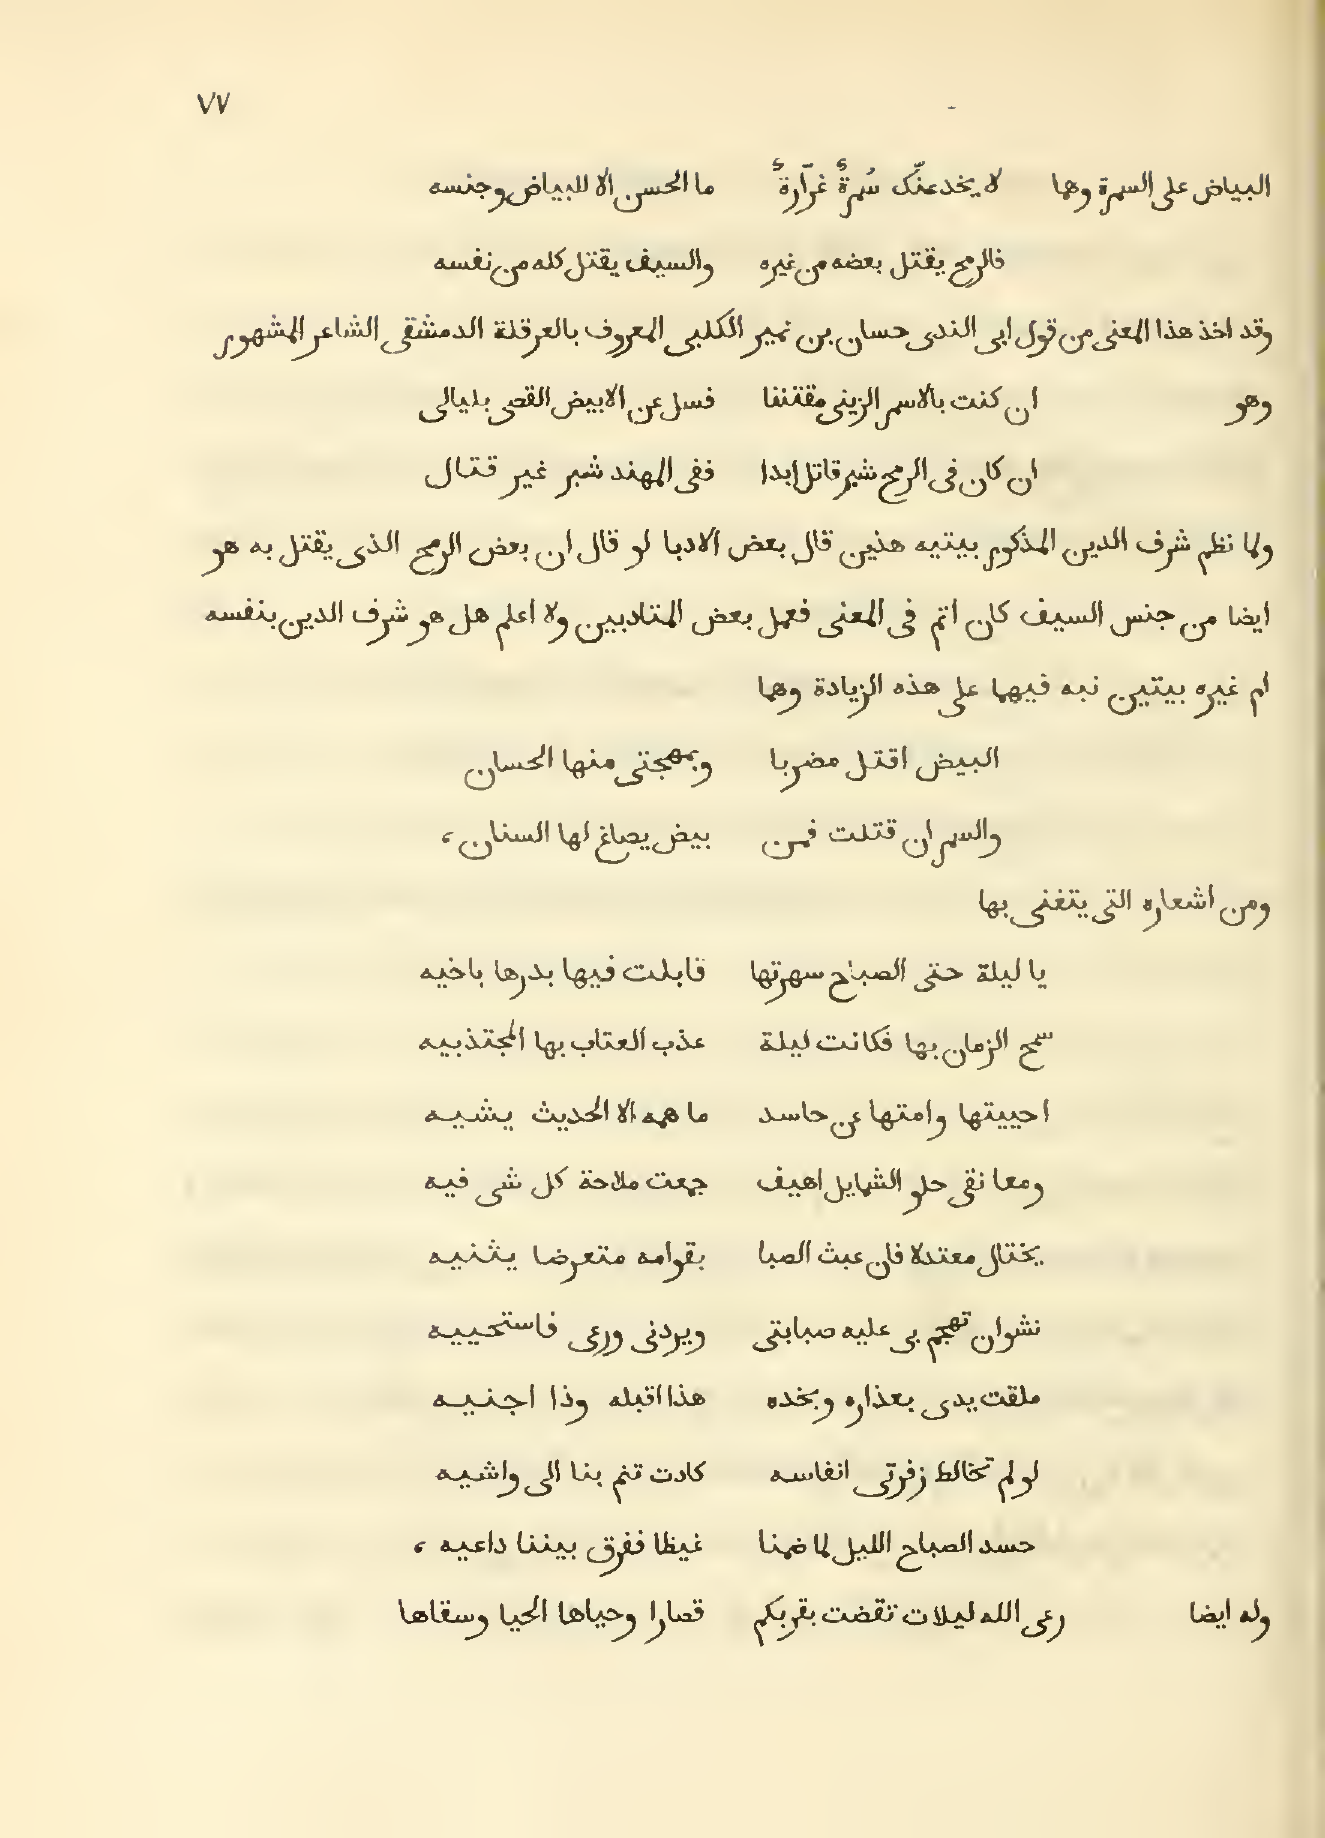 ٧٧
البياض على السمرة وهما لا يخدعنّك سُمرةٌ غرّارةٌ ما الحسن الا للبياض وجنسه
فالرمح يقتل بعضه من غيره والسيف يقتل كله من نفسه
وقد اخذ هذا المعنى من قول ابى الندى حسان بن نمير الكلبى المعروف بالعرقلة الدمشقى الشاعر المشهور
وهو ان كنت بالاسمر الزينى مفتتنا فسل عن الابيض القصى بليالى
ان كان فى الرمح شبر قاتل ابدا ففى المهند شبر غير قتال
ولما نظم شرف الدين المذكور بيتيه هذين قال بعض الادبا لو قال ان بعض الرمح الذى يقتل به هو
ايضا من جنس السيف كان اتم فى المعنى فعمل بعض المتادبين ولا اعلم هل هو شرف الدين بنفسه
ام غيره بيتين نبه فيهما على هذه الزيادة وهما
البيض اقتل مضربا وبمهجتى منها الحسان
والسمر ان قتلت فمن بيض يصاغ لها السنان ،
ومن اشعاره التى يتغنى بها
يا ليلة حتى الصباح سهرتها قابلت فيها بدرها باخيه
سمح الزمان بها فكانت ليلة عذب العتاب بها لمجتذبيه
احييتها وامتها عن حاسد ما همه الا الحديث يشيه
ومعانقى حلو الشمايل اهيف جمعت ملاحة كل شى فيه
يختال معتدلا فان عبث الصبا بقوامه متعرضا يثنيه
نشوان تهجم بى عليه صبابتى ويردنى ورعى فاستحييه
علقت يدى بعذاره وبخده هذا اقبله وذا اجنيه
لو لم تخالط زفرتى انفاسه كادت تنم بنا الى واشيه
حسد الصباح الليل لما ضمنا غيظا ففرق بيننا داعيه ،
وله ايضا رعى الله ليلات تقضت بقربكم قصارا وحياها الحيا وسقاها